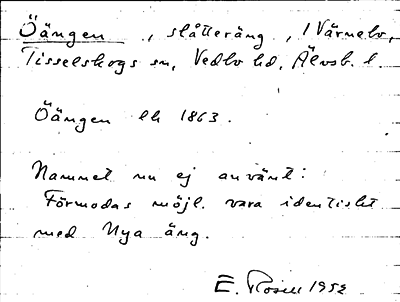 Öängen, slåtteräng, 1 Värnebo,
Tisselskogs sn, Vedbo hd, Älvsb. l.
Öängen lh 1863.
Namnet nu ej använt:
Förmodas möjl. vara identiskt
med Nya äng.
E. Rosell 1952